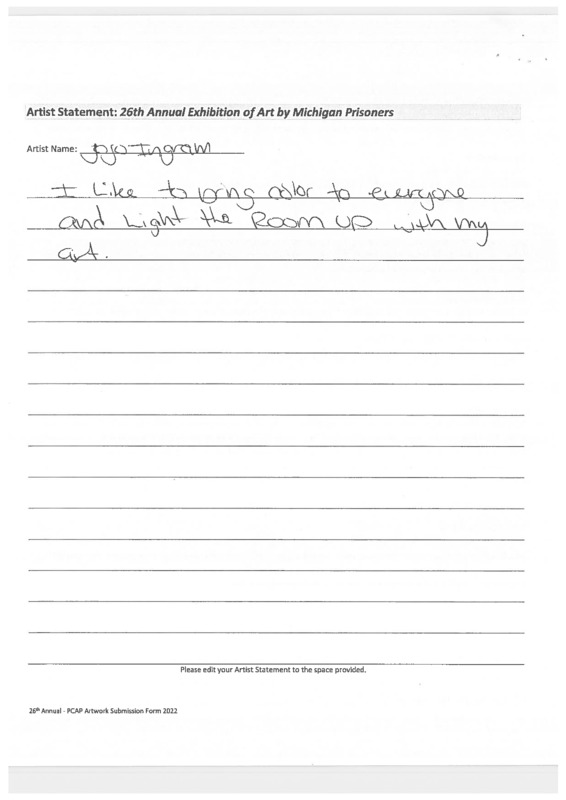 Artist Statement: 26th Annual Exhibition of Art by Michigan Prisoners
Artist Name: Ingram
I Like to bring color to everyone
and Light the Room up with my
art.
Please edit your Artist Statement to the space provided.
26th Annual - PCAP Artwork Submission Form 2022